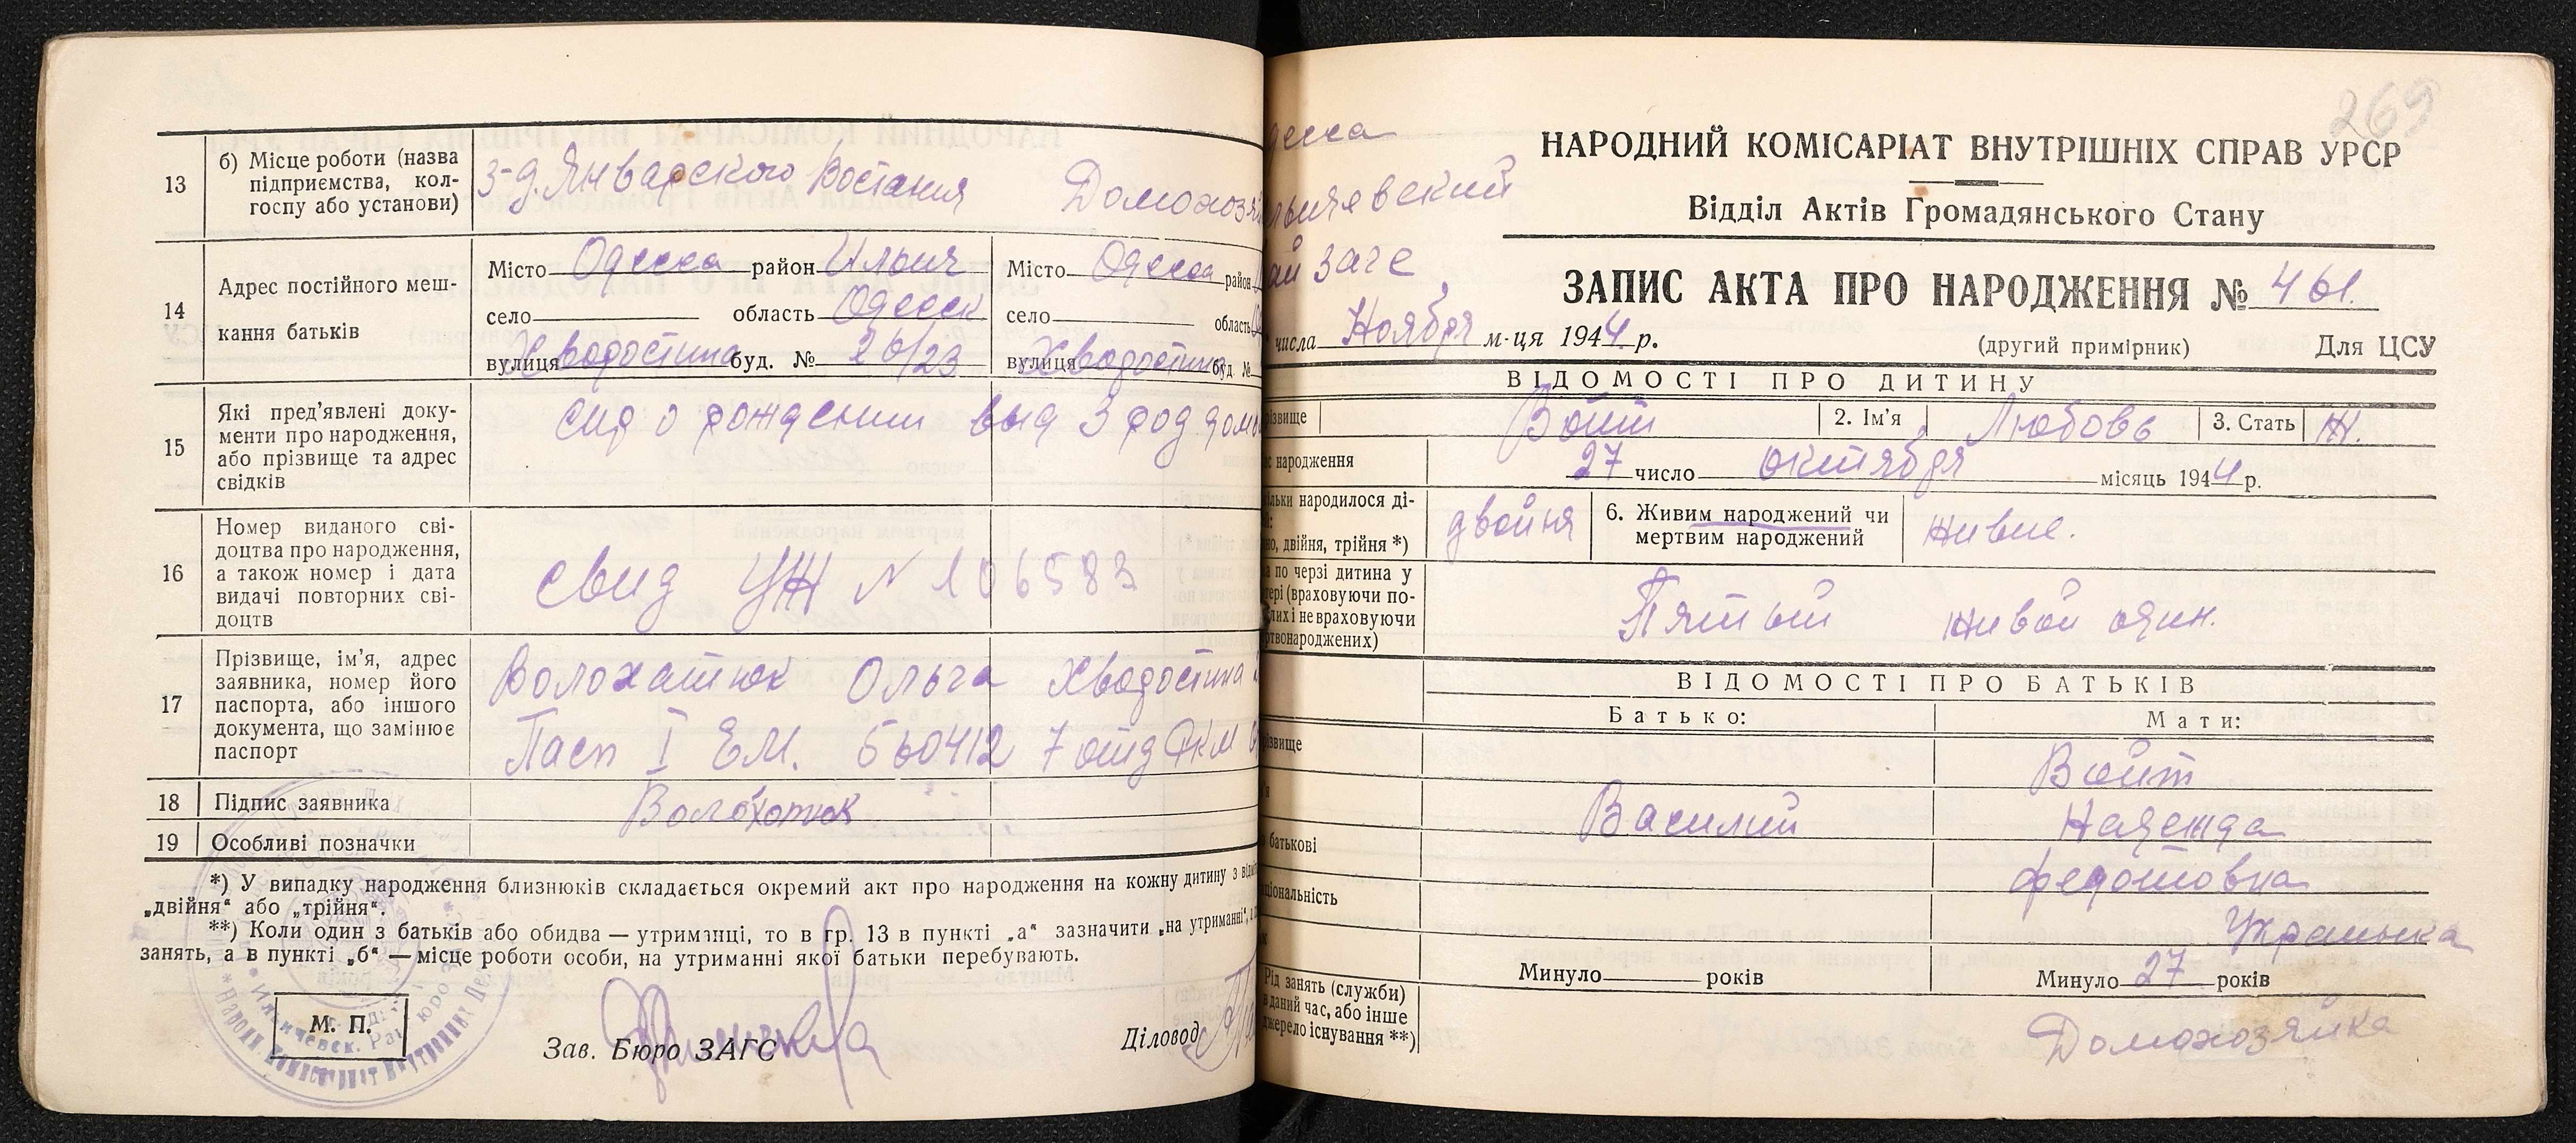 13
б) Місце роботи (назва
підприємства, кол-
госпу або установи)
з-д. Январского Востания
Домохозя
14
Адрес постійного меш-
кання батьків
Місто Одесса район Ильич
село область Одесск
вулиця Хводостина буд. № 26/23
Місто Одесса район
село область
вулиця Хводостина буд №
15
Які пред’явлені доку-
менти про народження,
або прізвище та адрес
свідків
о рождении выд 3 род дом
16
Номер виданого сві-
доцтва про народження,
а також номер і дата
видачі повторних сві-
доцтв
свид УЖ N 106583
17
Прізвище, ім’я, адрес
заявника, номер його
паспорта, або іншого
документа, що замінює
паспорт
Волохатюк Ольга Хводостина
Пасп I ЕМ. 560412 7 отд
18
Підпис заявника
Волохатюк
19
Особливі позначки
*) У випадку народження близнюків складається окремий акт про народження на кожну дитину з
„двійня“ або „трійня“.
**) Коли один з батьків або обидва — утриманці, то в гр. 13 в пункті „а“ зазначити „на утриманні“,
занять, а в пункті „б“ — місце роботи особи, на утриманні якої батьки перебувають.
М. П.
Зав. Бюро ЗАГС
Діловод
269
десса
льичевский
ай загс
НАРОДНИЙ КОМІСАРІАТ ВНУТРІШНІХ СПРАВ УРСР
Відділ Актів Громадянського Стану
ЗАПИС АКТА ПРО НАРОДЖЕННЯ № 461.
числа Ноября м-ця 1944 р.
(другий примірник)
Для ЦСУ
ВІДОМОСТІ ПРО ДИТИНУ
різвище Войт 2. Ім’я Любовь 3. Стать Ж.
с народження 27 число октября місяць 1944 р.
ільки народилося ді-
но, двійня, трійня *)
двойня
6. Живим народжений чи
мертвим народжений
живые.
а по черзі дитина у
тері (враховуючи по-
лих і не враховуючи
ртвонароджених)
Пятый живой один.
ВІДОМОСТІ ПРО БАТЬКІВ
Батько: Мати:
різвище Войт
м’я Василий Надежда
о батькові Федотовна
ціональність Украинка
Минуло років Минуло 27 років
Рід занять (служби)
в даний час, або інше
джерело існування **)
Домохозяйка